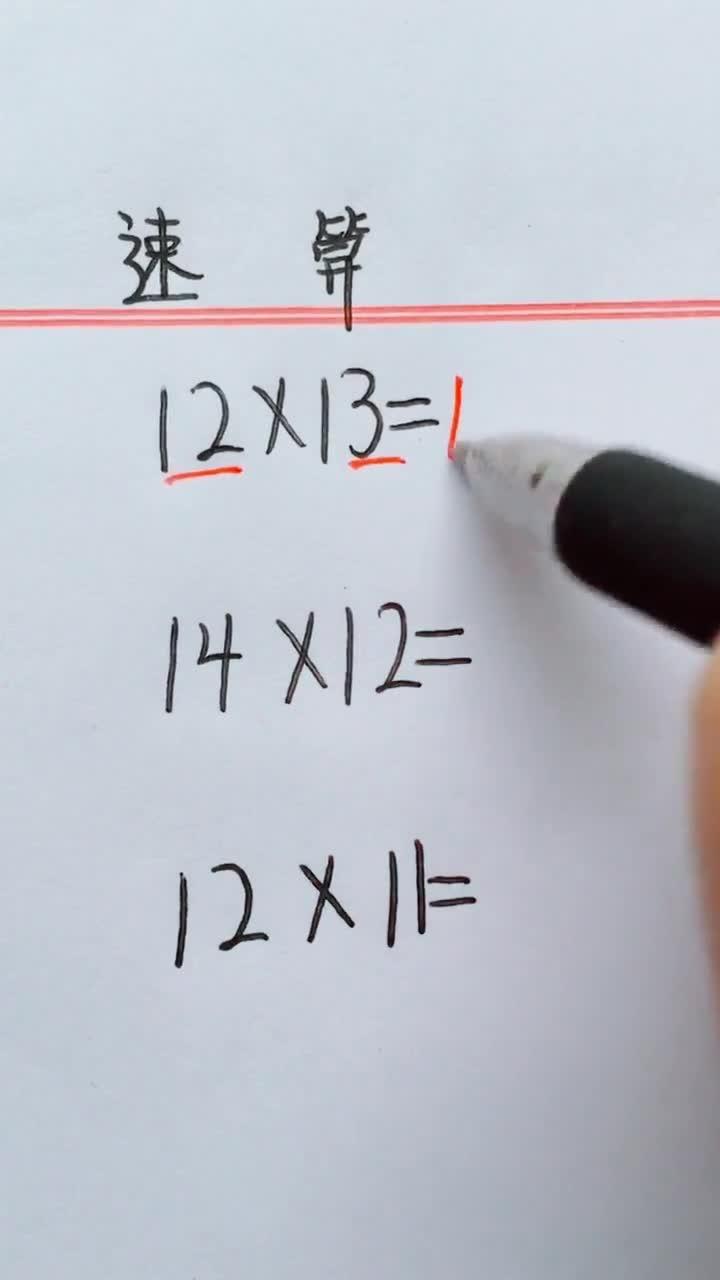 速 算
12×13=1
14×12=
12×11=